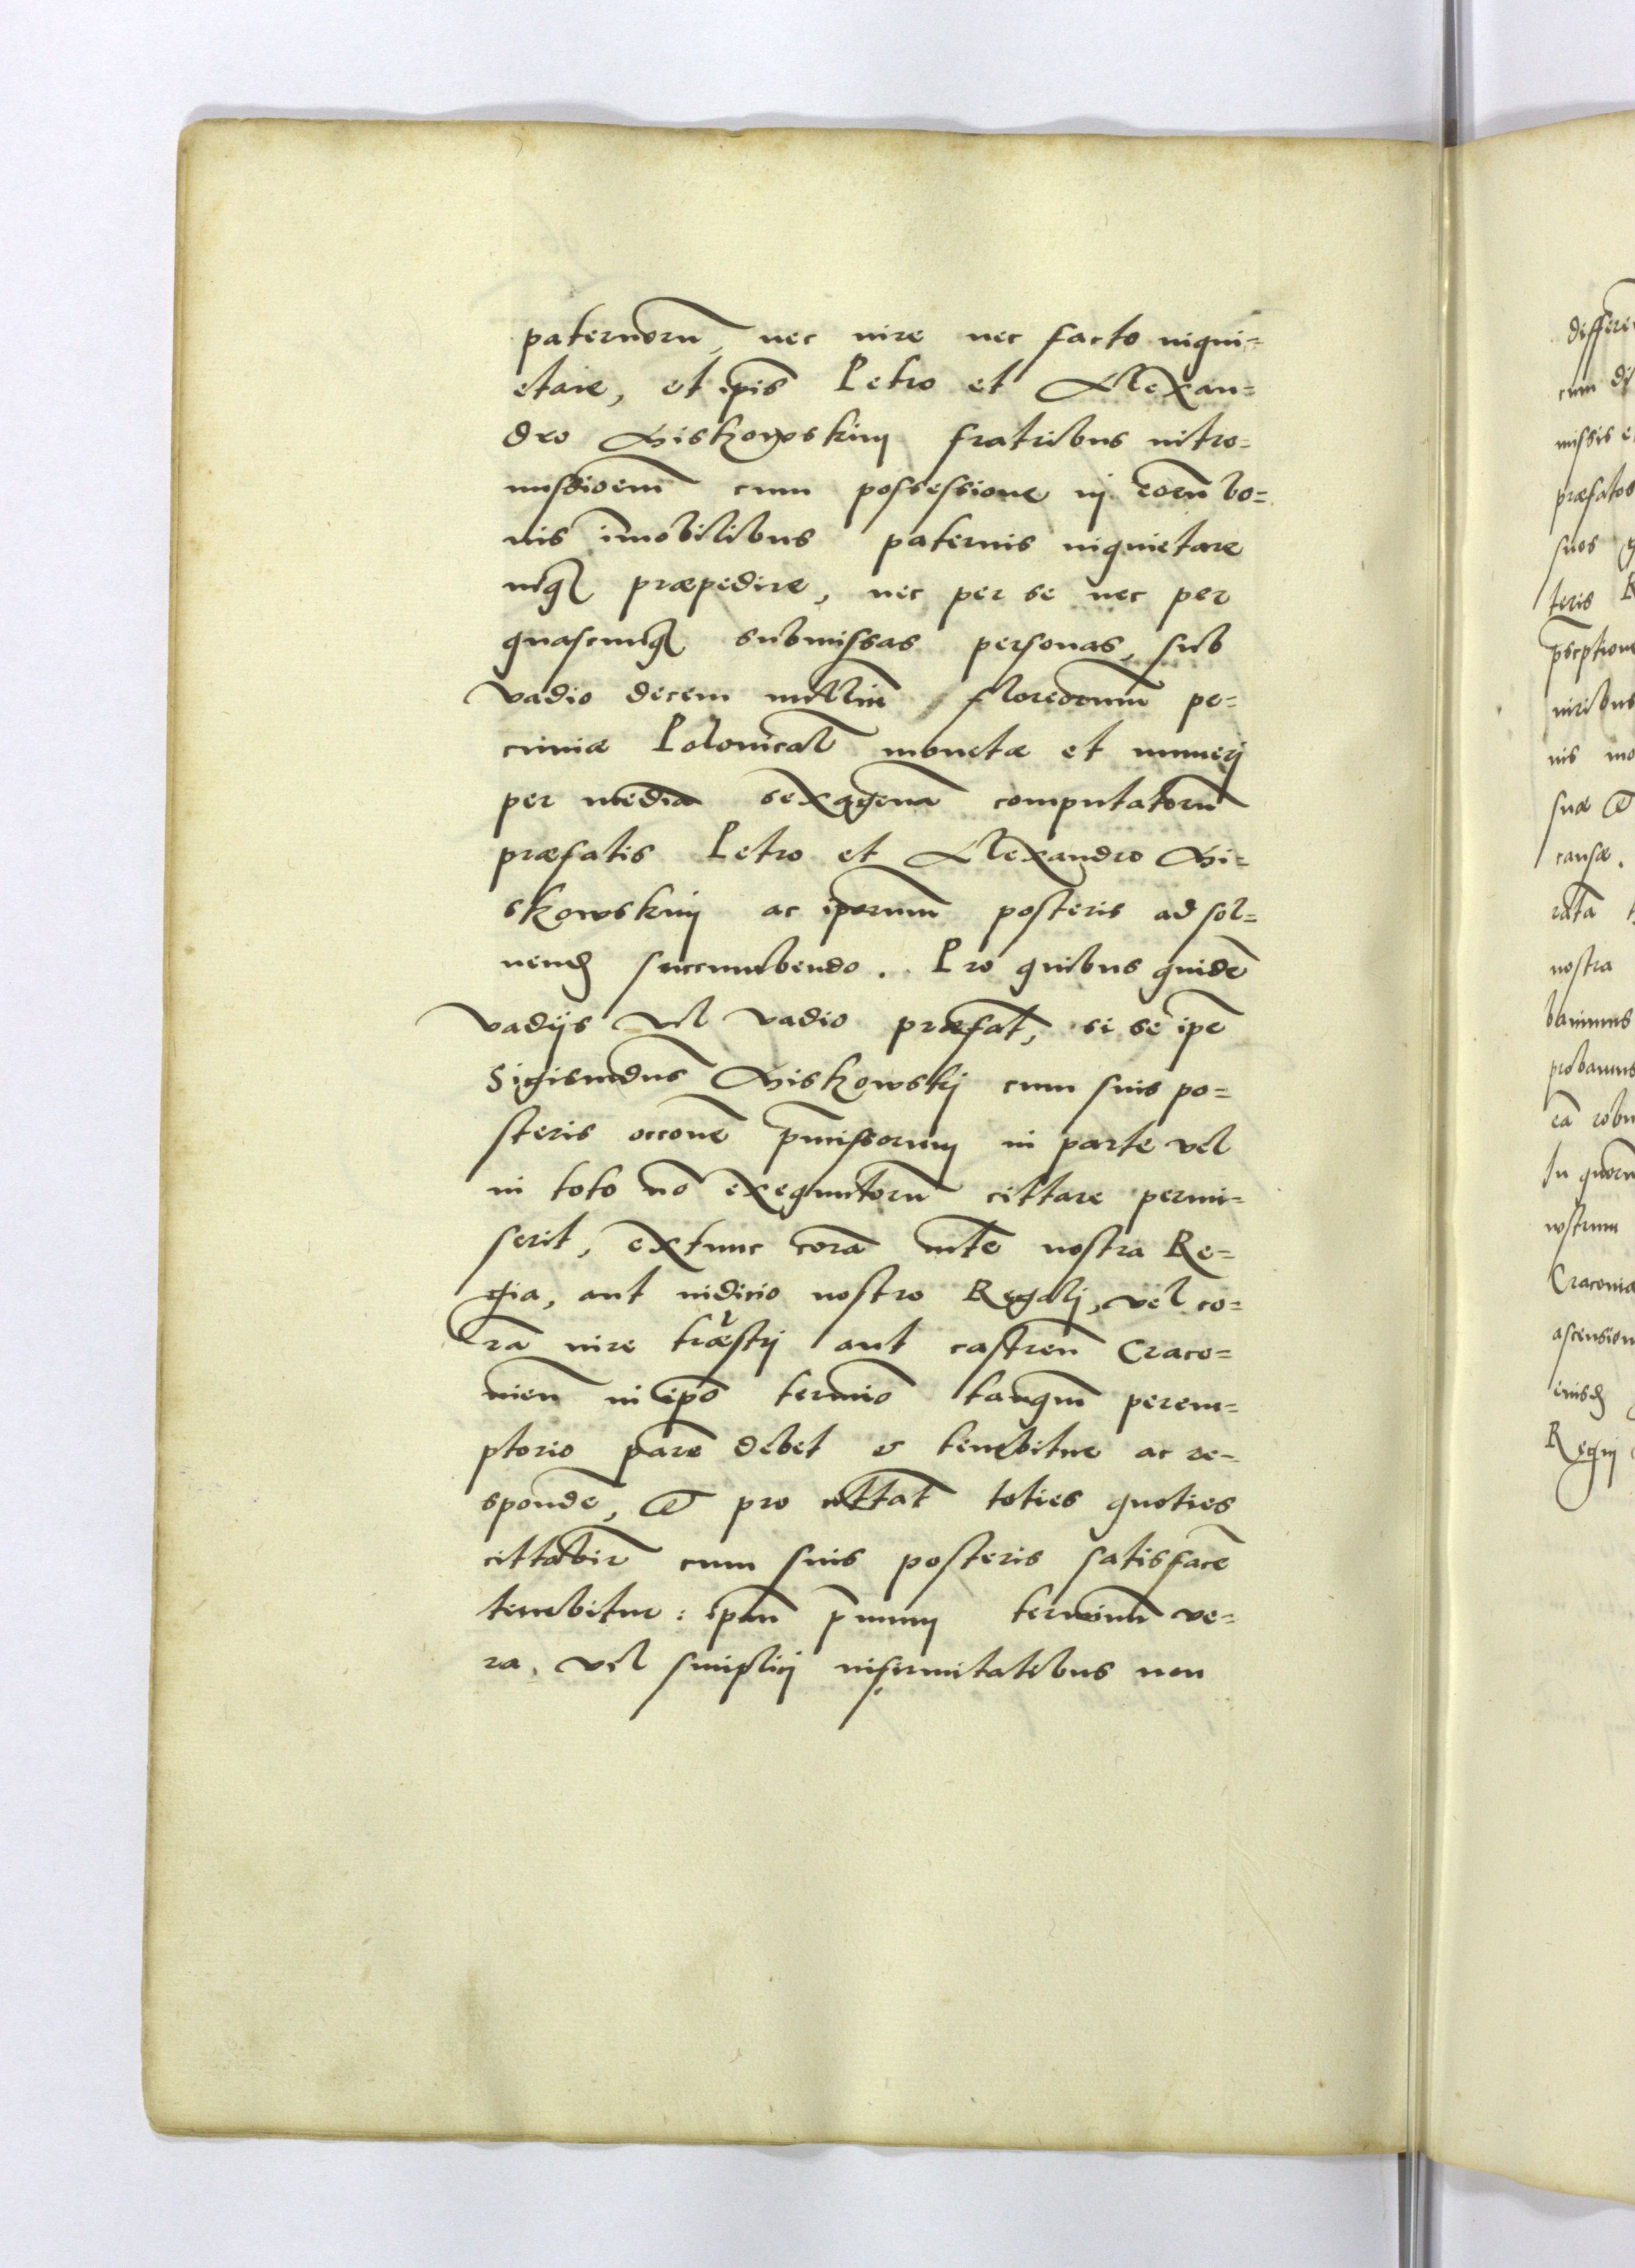 paternorū, nec iure nec facto inqui=
etare, et ip̄is Petro et Alexan=
dro Giskowskim fratribus intro=
missioem̄ cum possessione in eorū bo=
nis im̄obilibus paternis inquietare
neq₃ præpedire, nec per se nec per
quascunq₃ submissas personas, sub
vadio decem milliū floreorum pe=
cuniæ Polonical̄ monetæ et numerj
per media sexagena computatorū
præfatis Petro et Alexandro Gi=
skowskim ac ip̄orum posteris ad sol=
uend₎ succumbendo. Pro quibus quidē
vadijs vel vadio præfat̄, si se ip̄e
Sigismūdus Giskowskj cum suis po=
steris occōne p̄missorum in parte vel
in toto nō exequutorū cittare permi=
serit, extunc corā mt̄e nostra Re=
gia, aut iudicio nostro Regalj, vel co=
rā iure træstrj aut castren̄ Craco=
uien̄ in ip̄o termīo tanqm̄ perem=
ptorio parē debet & tenebitur ac re=
spondē, et pro cittat̄ toties quoties
cittabit̄ cum suis posteris satisfacē
tenebitur: ip̄um p̄mum terminū ve=
ra, vel simplicj infirmitatibus non
differe
cum di
missis e
præfatos
suos
teris R
pscptione
iuribus
nis mo
suæ et
causæ.
ratā
nostra
bauimus
probamus
eā robu
In quorū
nostrum
Cracouiæ
ascension
eiusd₎
Regnj